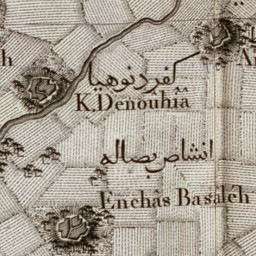 كفر دنوهيا
K. Denouhiâ
انشاص بصاله
Enchâs Basâléh